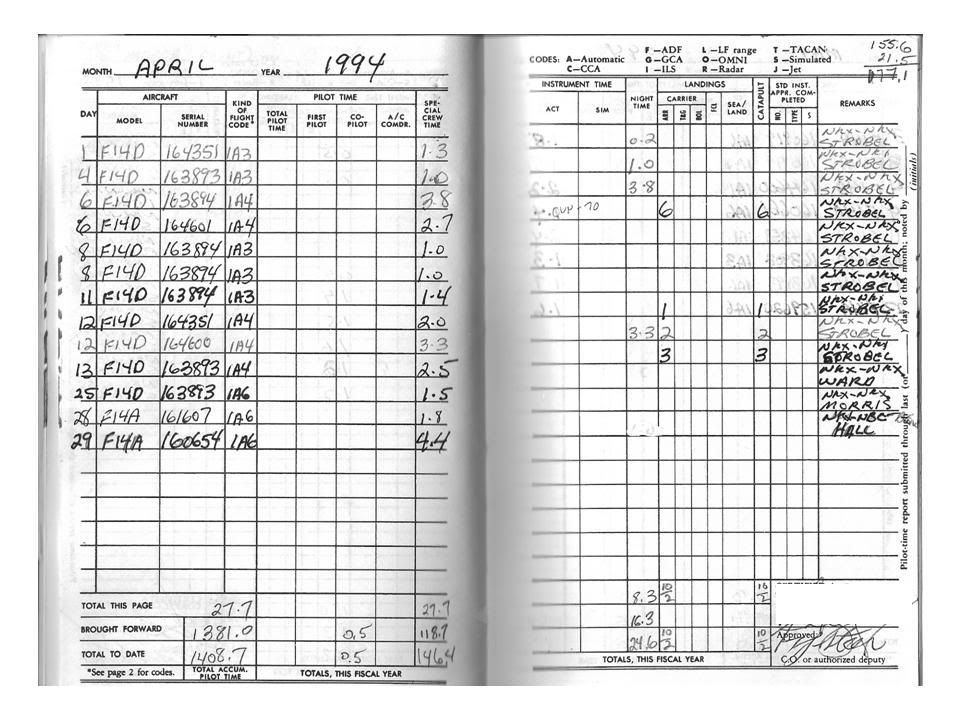 MONTH APRIL YEAR 1994
DAY AIRCRAFT MODEL SERIAL NUMBER KIND OF FLIGHT CODE* PILOT TIME TOTAL PILOT TIME FIRST PILOT CO-PILOT A/C COMDR. SPE-CIAL CREW TIME
1 F14D 164351 1A3 1.3
4 F14D 163893 1A3 1.0
6 F14D 163894 1A4 3.8
6 F14D 164601 1A4 2.7
8 F14D 163894 1A3 1.0
8 F14D 163894 1A3 1.0
11 F14D 163894 1A3 1.4
12 F14D 164351 1A4 2.0
12 F14D 164600 1A4 3.3
13 F14D 163893 1A4 2.5
25 F14D 163893 1A6 1.5
28 F14A 161607 1A6 1.8
29 F14A 160654 1A6 4.4
TOTAL THIS PAGE 27.7 27.7
BROUGHT FORWARD 1381.0 0.5 118.7
TOTAL TO DATE 1408.7 0.5 146.4
*See page 2 for codes. TOTAL ACCUM. PILOT TIME TOTALS, THIS FISCAL YEAR
CODES: A—Automatic C—CCA
F—ADF G—GCA I—ILS
L—LF range O—OMNI R—Radar
T—TACAN S—Simulated J—Jet
155.6
21.5
177.1
INSTRUMENT TIME ACT SIM NIGHT TIME LANDINGS CARRIER ARR T&G BOL FCL SEA/LAND CATAPULT STD INST. APPR. COM-PLETED NO. TYPE S REMARKS
0.2 NKX-NKX STROBEL
1.0 NKX-NKX STROBEL
3.8 NKX-NKX STROBEL
6 6 NKX-NKX STROBEL
NKX-NKX STROBEL
NKX-NKX STROBEL
NKX-NKX STROBEL
1 1 NKX-NKX STROBEL
3.3 2 2 NKX-NKX STROBEL
3 3 NKX-NKX STROBEL
NKX-NKX WARD
NKX-NKX MORRIS
HALL
8.3 10/2 10/2
16.3
24.6 10/2 10/2
Approved:
TOTALS, THIS FISCAL YEAR C.O. or authorized deputy
Pilot-time report submitted through last (or day of this month; noted by (initials)